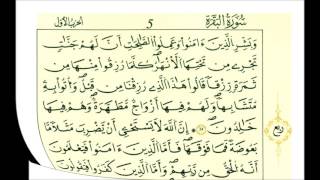 الحزب الأول 5 سُورَةُ البَقَرَةِ
وَبَشِّرِ الذِينَ ءَامَنُوا وَعَمِلُوا الصَّٰلِحَٰتِ أَنَّ لَهُمْ جَنَّٰتٍ
تَجْرِي مِن تَحْتِهَا الَانْهَٰرُ كُلَّمَا رُزِقُوا مِنْهَا مِن
ثَمَرَةٍ رِّزْقًا قَالُوا هَٰذَا الذِي رُزِقْنَا مِن قَبْلُ وَأُتُوا بِهِ
مُتَشَٰبِهًا وَلَهُمْ فِيهَا أَزْوَٰجٌ مُّطَهَّرَةٌ وَهُمْ فِيهَا
خَٰلِدُونَ إِنَّ اللَّهَ لَا يَسْتَحْيِي أَنْ يَّضْرِبَ مَثَلًا مَّا
بَعُوضَةً فَمَا فَوْقَهَا فَأَمَّا الذِينَ ءَامَنُوا فَيَعْلَمُونَ
أَنَّهُ الْحَقُّ مِن رَّبِّهِمْ وَأَمَّا الذِينَ كَفَرُوا فَيَقُولُونَ
ربع